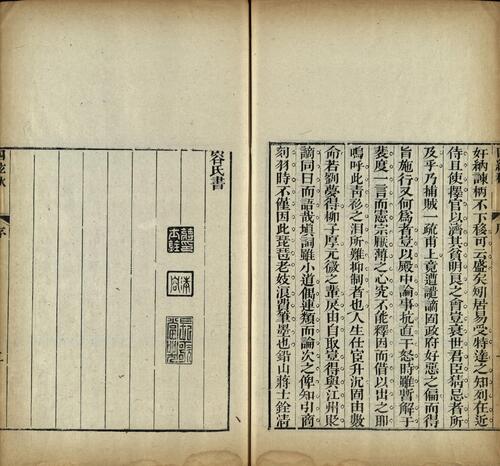 奸納諫柄不下移可云盛矣矧居易受特達之知列在近
侍且使學官以濟其貧明良之會豈衰世君臣猜忌者所
及乎乃捕賊一疏甫上竟遭讒謫固政府好惡之偏而得
旨施行又何為者豈以殿中論事抗直干怒時雖暫解于
裴度一言而憲宗厭薄之心究不能釋因而借以出之耶
嗚呼此青衫之淚所難抑制者也人生仕宦升沉固由數
命若劉夢得柳子厚元微之輩戾由自取豈得與江州貶
謫同日而語哉填詞雖小道偶連類而論次之俾知引商
刻羽時不僅因此琵琶老妓浪費筆墨也鉛山蔣士銓清
容氏書
四絃秋
序